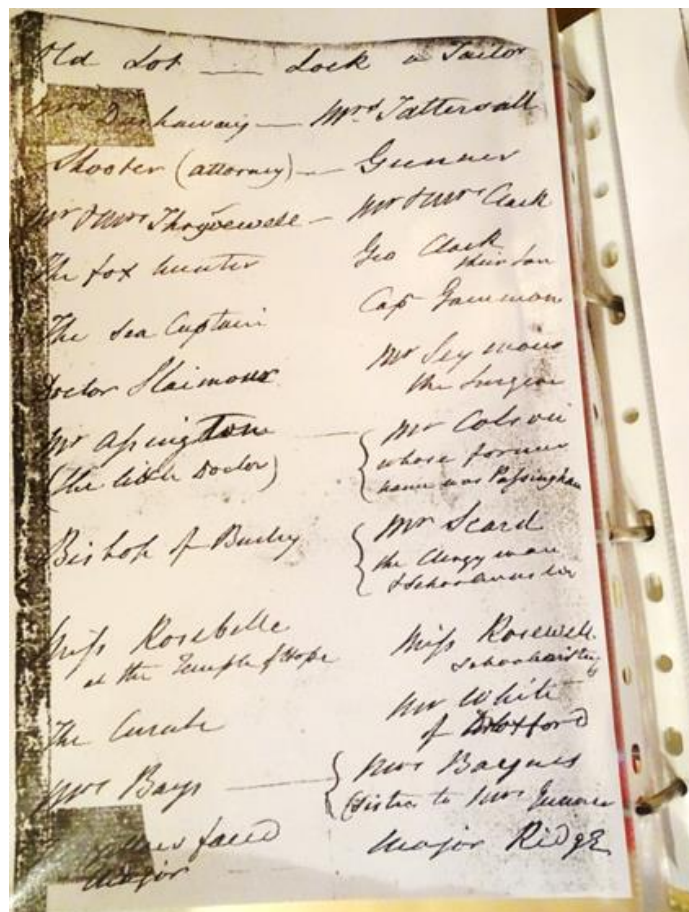 Old Lot — Lock a Tailor
Mrs Dashaway — Mrs Tattersall
Shooter (attorney) — Gunner
Mr & Mrs Thryvewell — Mr & Mrs Clark
The fox hunter Geo Clark
their son
The Sea Captain Cap Gammon
Doctor Slaimour Mr Seymour
the Surgeon
Mr Assington — Mr Colson
(the little Doctor) whose former
name was Passingham
Bishop of Mr Scard
the Clergyman
& Schoolmaster
Miss Rosebelle Miss Rosewell
at the Temple of Hope Schoolmistress
The Curate Mr White
of Droxford
Mrs Bays — Mrs Baynes
(Sister to Mrs Gunner
faced Major Ridge
Major